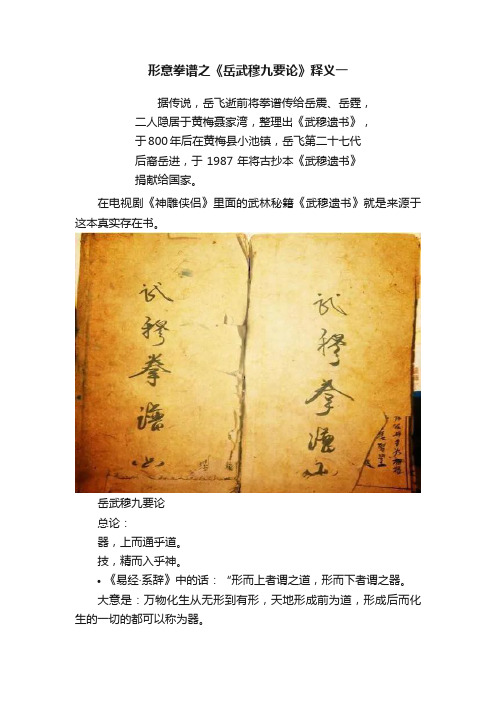 形意拳谱之《岳武穆九要论》释义一
据传说，岳飞逝前将拳谱传给岳震、岳霆，
二人隐居于黄梅聂家湾，整理出《武穆遗书》，
于800年后在黄梅县小池镇，岳飞第二十七代
后裔岳进，于1987年将古抄本《武穆遗书》
捐献给国家。
在电视剧《神雕侠侣》里面的武林秘籍《武穆遗书》就是来源于
这本真实存在书。
武穆拳谱
武穆拳谱
岳武穆九要论
总论：
器，上而通乎道。
技，精而入乎神。
•《易经·系辞》中的话：“形而上者谓之道，形而下者谓之器。
大意是：万物化生从无形到有形，天地形成前为道，形成后而化
生的一切的都可以称为器。